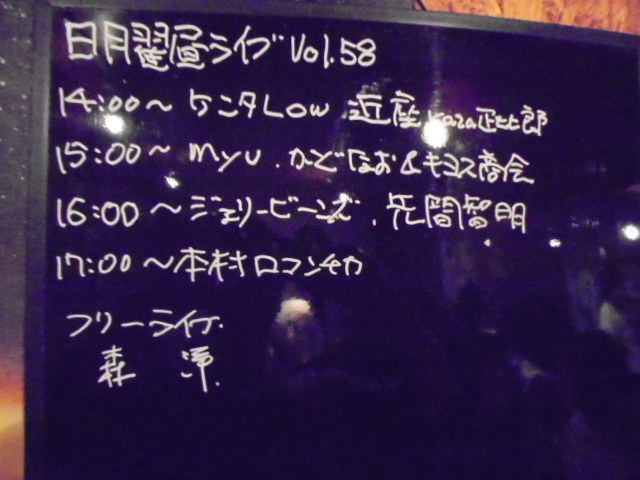 日月曜昼ライブ Vol.58
14:00～ ケンタLow 近座 kaza正比郎
15:00～ myu. かどなお&キヨス商会
16:00～ジェリービーンズ. 先間智明
17:00～本村ロマンチカ
フリーライブ.
森 淳.